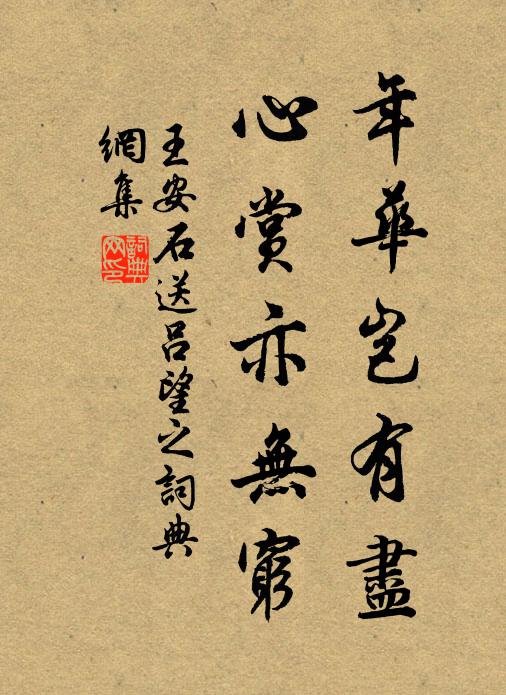 年華豈有盡
心賞亦無窮
王安石送呂望之詞典
網集
詞典网印